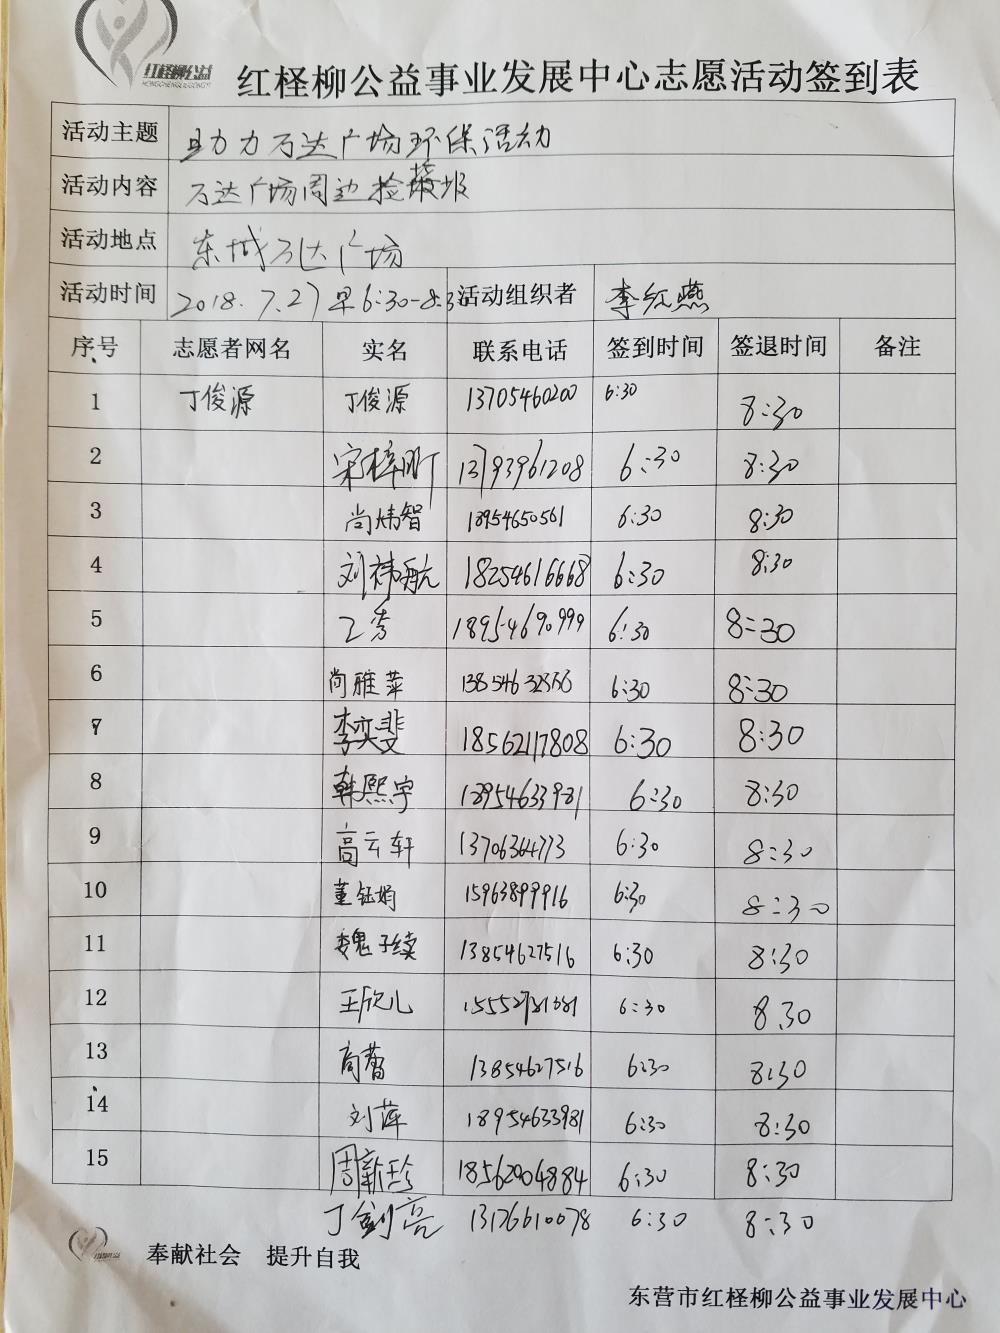 红柽柳公益
HONGCHENGLIUGONGYI
红柽柳公益事业发展中心志愿活动签到表
活动主题 助力万达广场环保活动
活动内容 万达广场周边捡垃圾
活动地点 东城万达广场
活动时间 2018.7.27早6:30-8:3 活动组织者 李红燕
序号 志愿者网名 实名 联系电话 签到时间 签退时间 备注
1 丁俊源 丁俊源 13705460200 6:30 8:30
2 宋梓町 13793961208 6:30 8:30
3 尚炜智 18954650561 6:30 8:30
4 刘祎航 18254616668 6:30 8:30
5 18954690999 6:30 8:30
6 尚雅苹 6:30 8:30
7 李奕斐 18562117808 6:30 8:30
8 韩熙宇 18954633981 6:30 8:30
9 高云轩 13706364773 6:30 8:30
10 董钰娟 15963899916 6:30 8:30
11 魏子续 13854627516 6:30 8:30
12 王欣儿 6:30 8.30
13 13854627516 6:30 8:30
14 刘萍 18954633981 6:30 8:30
15 周新珍 18562004884 6:30 8:30
丁剑亮 13176610078 6:30 8:30
奉献社会 提升自我
东营市红柽柳公益事业发展中心